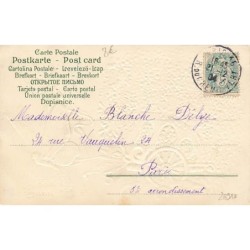 Carte Postale
Postkarte - Post card
Cartolina Postale - Levelező-Lap
Brefkort - Briefkaart - Brevkort
ОТКРЫТОЕ ПИСЬМО
Tarjeta postal - Carta postal
Union postale universelle
Dopisnice.
Mademoiselle Blanche Délye
24 rue Vauquelin 24
Paris
5e arrondissement